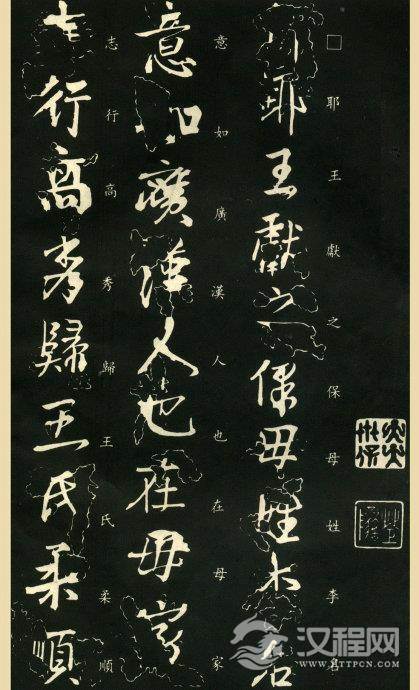 琊耶王獻之保母姓李名
□耶王獻之保母姓李名
意如廣漢人也在母家
意如廣漢人也在母家
志行高秀歸王氏柔順
志行高秀歸王氏柔順
汉程网
HTTPCN.COM